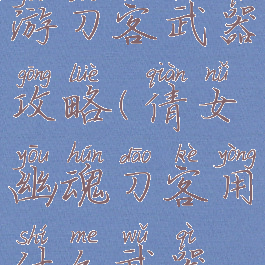 游刀客武器
gōng lüè qiàn nǚ
攻略(倩女
yōu hún dāo kè yòng
幽魂刀客用
shí me wǔ qì